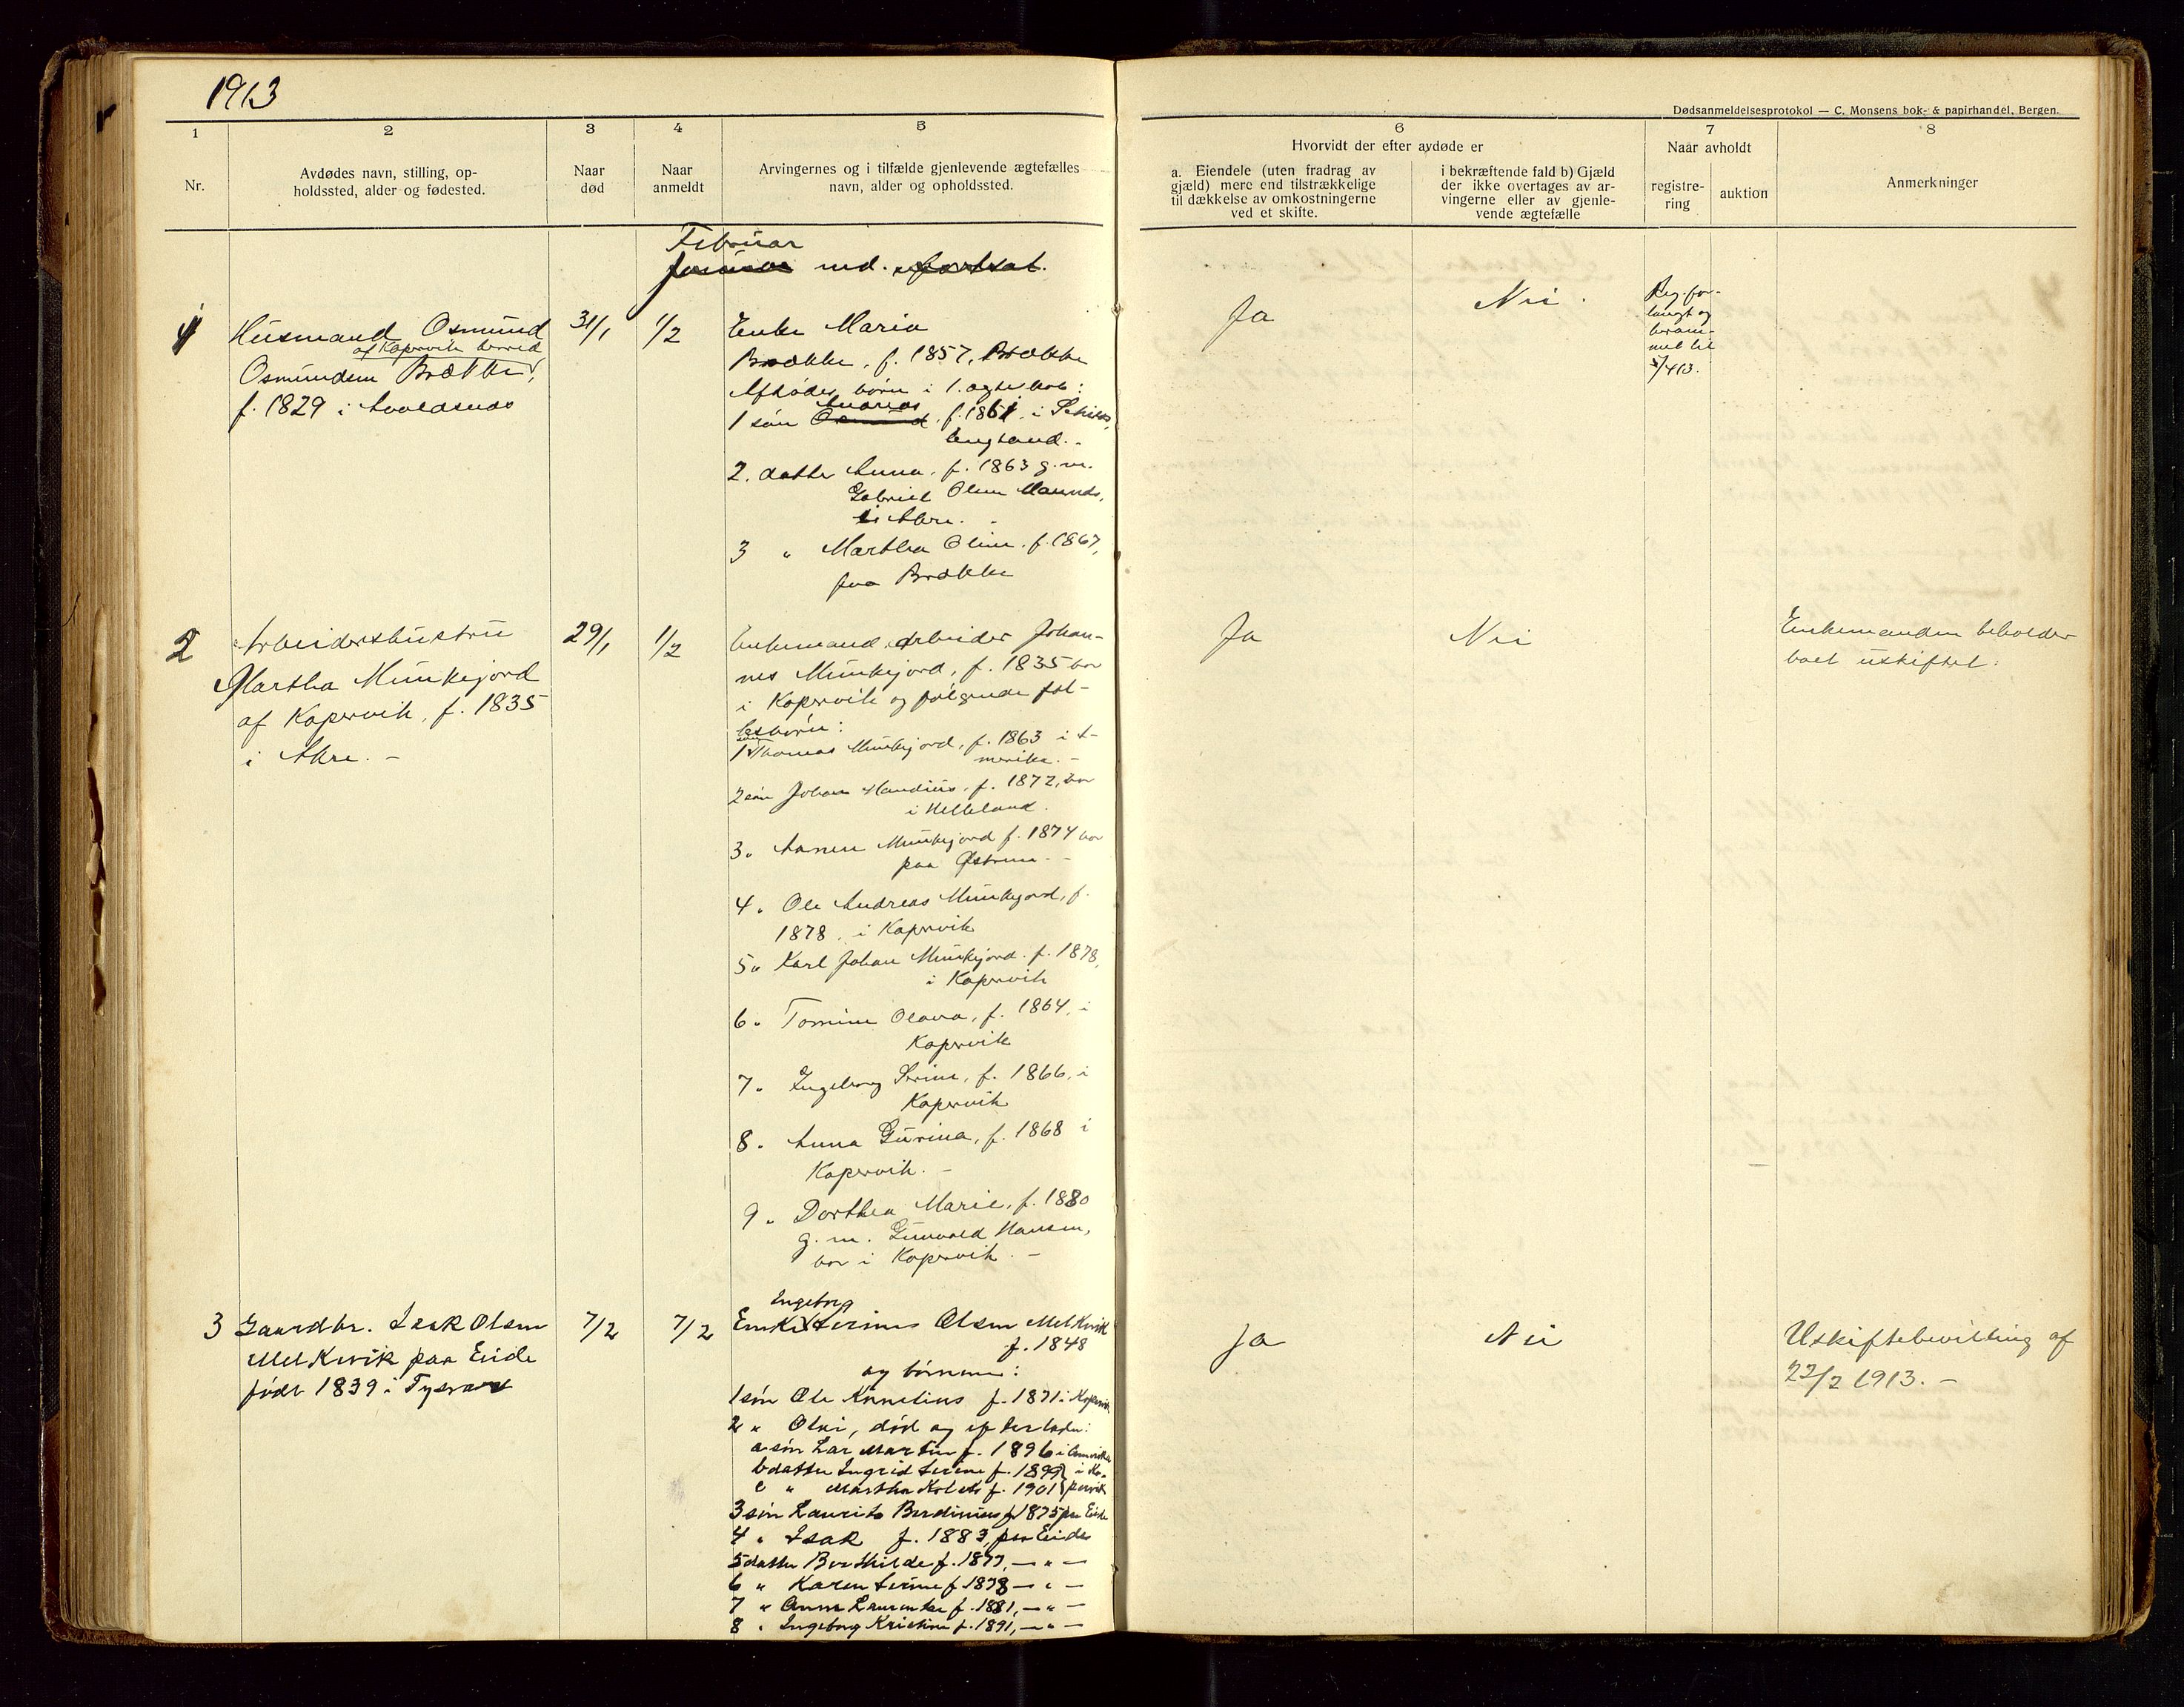 1913
Dødsanmeldelsesprotokol — C. Monsens bok- & papirhandel, Bergen.
1
2
3
4
5
6
7
8
Nr.
Avdødes navn, stilling, op-
holdssted, alder og fødested.
Naar
død
Naar
anmeldt
Arvingernes og i tilfælde gjenlevende ægtefælles
navn, alder og opholdssted.
Hvorvidt der efter avdøde er
a. Eiendele (uten fradrag av
gjæld) mere end tilstrækkelige
til dækkelse av omkostningerne
ved et skifte.
i bekræftende fald b) Gjæld
der ikke overtages av ar-
vingerne eller av gjenle-
vende ægtefælle
Naar avholdt
registre-
ring
auktion
Anmerkninger
Februar
Januar md. fortsat.
1
Husmand Osmund
af Kopervik
Osmundsen Brække,
f. 1829 i Avaldsnes
31/1
1/2
Enke Maria
Brække, f. 1857, Brække
Afdødes børn i 1. ægteskab:
Andreas
1 søn Osmund f. 1861 i Schields,
England. -
2. datter Anna, f. 1863 g. m.
Gabriel Olsen
i Akre. -
3 " Martha Oline f. 1867,
paa Brække
Ja
Nei.
Reg. for-
langt og
beram-
met til
5/4 13.
2
Arbeiderhustru
Martha Munkejord
af Kopervik, f. 1835
i Akre. -
29/1
1/2
Enkemand, arbeider Johan-
nes Munkejord, f. 1835 bor
i Kopervik og følgende fæl-
lesbørn:
søn
1 Thomas Munkejord, f. 1863 i A-
merika. -
2 søn Johan f. 1872, bor
i Helleland.
3. " Aanen Munkejord f. 1874 bor
paa Østrem. -
4. " Ole Andreas Munkejord, f.
1878, i Kopervik
5 " Karl Johan Munkejord f. 1878,
i Kopervik
6 " Tomine Olava, f. 1864, i
Kopervik
7 " Ingeborg Serine, f. 1866, i
Kopervik
8 " Anna Gurina, f. 1868 i
Kopervik. -
9 " Dorthea Marie, f. 1880
g. m. Gunvald Hansen,
bor i Kopervik. -
Ja
Nei
Enkemanden beholder
boet uskiftet.
3
Gaardbr. Isak Olsen
MelKvik paa Eide
født 1839 i Tysvær
7/2
7/2
Ingeborg
Enke Serine Olsen MelKvik
f. 1848
og børnene:
1 søn Ole Kornelius f. 1871 i Kopervik
2 " død og efterlader:
a søn Lar Martin f. 1896 i Amerika
b datter Ingrid Serine f. 1899 } i Ko-
c " Martha f. 1901 } pervik
3 søn Laurits Berdinius f 1875 paa Eide
4 " Isak f. 1883, paa Eide
5 datter Berthilde f. 1877, — " —
6 " Karen Serine f 1878 — " —
7 " Anna Laurentse f. 1881, — " —
8 " Ingeborg Kristine f. 1891, — " —
Ja
Nei
Uskiftebevilling af
22/2 1913. -